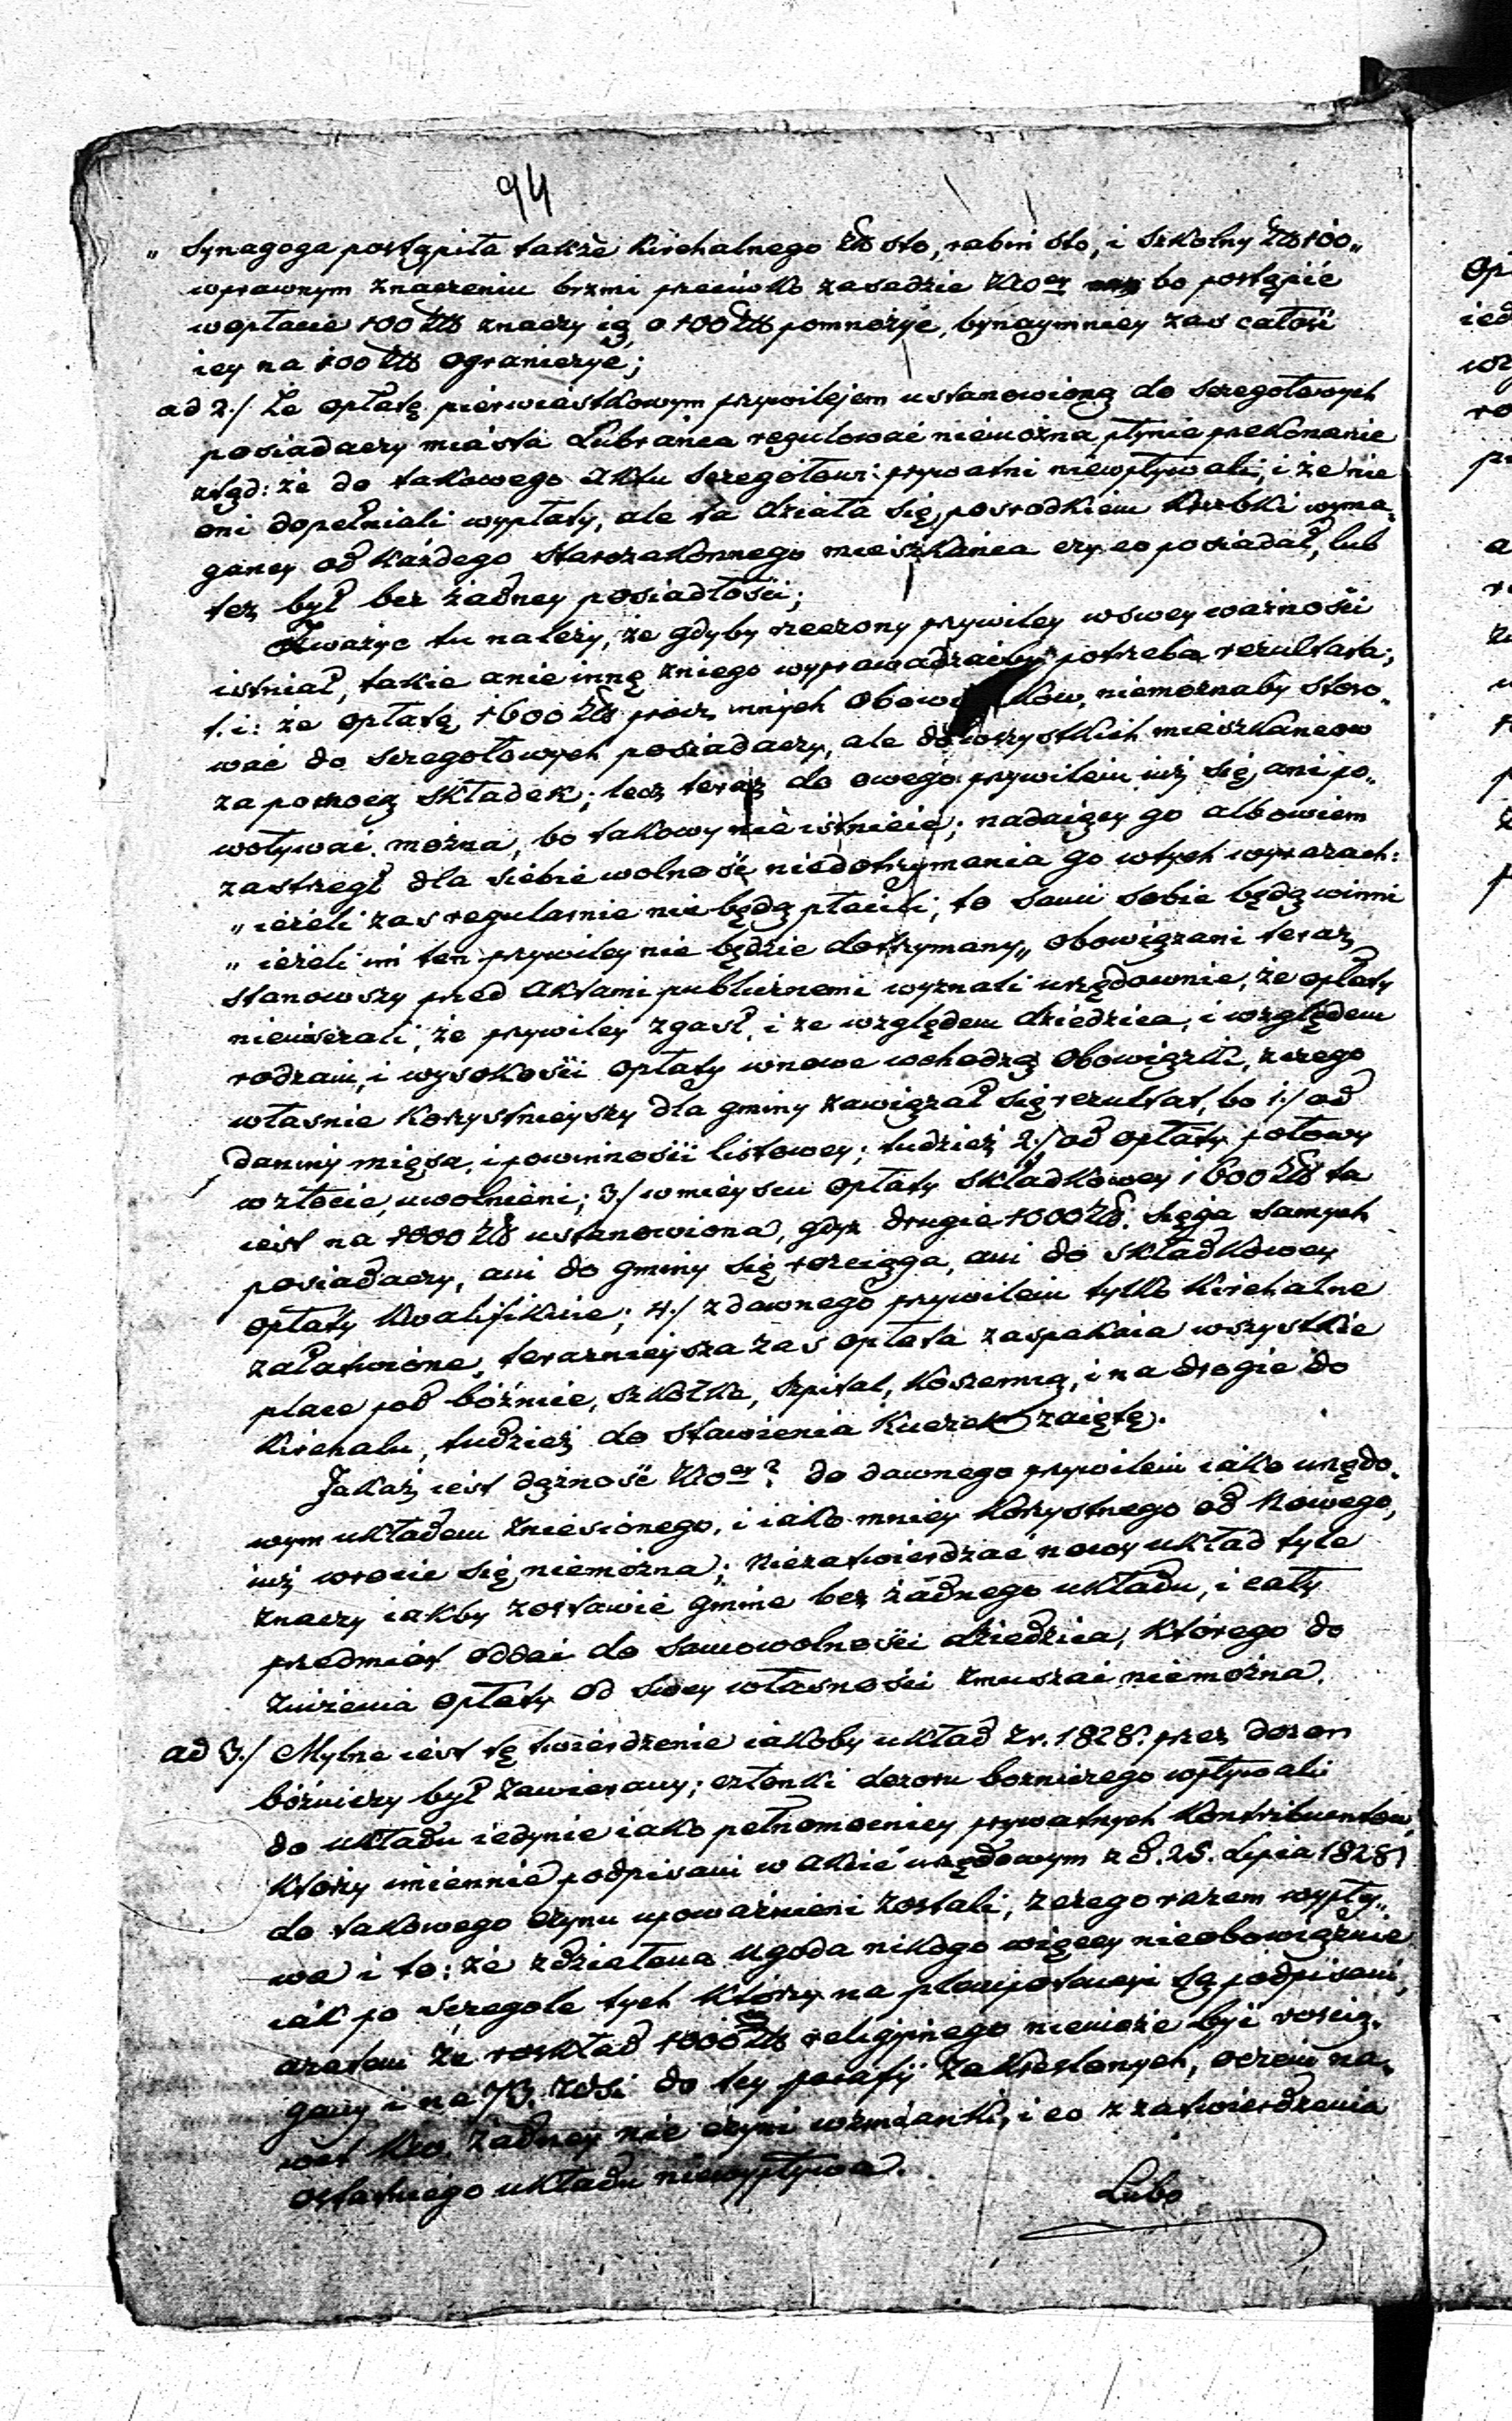 94
„ Synagoga postąpiła także kirchalnego Złł sto, rabin sto, i szkolny Złł 100„
wprawnym znaczeniu brzmi przeciwko zasadzie bo postąpić
wopłacie 100 Złł znaczy ią o 100 Złł pomnożyć, bynaymniey zaś całość
iey na 100 Złł ograniczyć;
ad 2./ Że opłatę pierwiastkowym przywilejem ustanowioną do szegołowych
posiadaczy miasta Lubrańca regulować niemożna płynie przekonanie
ztąd: że do takowego aktu szegołowi prywatni niewpływali, i że nie
oni dopełniali wypłaty, ale ta działa się posrodkiem krobki wyma„
ganey od każdego starozakonnego mieszkańca czy co posiadał, lub
też był bez żadney posiadłości;
Zważyć tu należy, że gdyby rzeczony przywiley wswey ważności
istniał, takie anie inne zniego wyprowadzaćby potrzeba rezultata;
t. i: że opłatę 1600 Złł prócz innych niemożnaby stoso„
wać do szegołowych posiadaczy, ale do wszystkich mieszkancow
za pomocą składek; lecz teraz do owego przywileiu iuż się ani po„
woływać można, bo takowy nie istnieie; nadaiący go albowiem
zastrzegł dla siebie wolność niedotrzymania go wtych wyrazach:
„ ieżeli zas regularnie nie będą płacili, to sami sobie będą winni
„ ieżeli im ten przywiley nie będzie dotrzymany„ obowiązani teraz
stanowszy przed aktami publicznemi wyznali urzędownie, że opłaty
nieuiszczali, że przywiley zgasł, i że względem dziedzica, i względem
rodzaiu, i wysokości opłaty wnowe wchodzą obowiązki, zczego
własnie korzystnieyszy dla gminy zawiązał się rezultat, bo 1./ od
daniny mięsa, i powinności listowey; tudzież 2./ od opłaty połowy
w złocie, uwolnieni; 3./ wmieyscu opłaty składkowey 1600 Złł ta
iest na 1000 Złł ustanowiona, gdyż drugie 1000 Złł. sięga samych
posiadaczy, ani do gminy się rozciąga, ani do składkowey
opłaty kwalifikuie; 4./ zdawnego przywileiu tylko kirchalne
załatwione, terazniejsza zas opłata zaspakaia wszystkie
place pod bóżnice, szkołkę, szpital, koszernią, i na drogie do
kirchalu, tudzież do stawienia kuczek zaięte.
Jakaż iest dążność ? do dawnego przywileiu iako urzędo„
wym układem zniesionego, i iako mniey korzystnego od nowego,
iuż wrócić się niemożna; niezatwierdzać nowy układ tyle
znaczy iakby zostawić gminę bez żadnego układu, i cały
przedmiot oddać do samowolności dziedzica, którego do
zniżenia opłaty od swey własności zmuszać niemożna.
ad 3./ Mylne iest tę twierdzenie iakoby układ z r. 1828. przez dozor
bóżniczy był zawierany; członki dozoru bozniczego wpływali
do układu iedynie iako pełnomocnicy prywatnych kontribuentow,
którzy imiennie podpisani w akcie urzędowym z d. 28. Lipca 1828
do takowego czynu upoważnieni zostali, zczego razem wypły„
wa i to: że zdziałana ugoda nikogo więcey nieobowiązuie
iak po szczegole tych którzy na plenipotencyi są podpisani,
azatem że roskład 1000 Złł religyinego niemoże być rością„
gany i na do tey parafij zakreslonych, oczem na„
wet żadney nie czyni wzmianki, i co z zatwierdzenia
ostatniego układu niewypływa.
Lubo